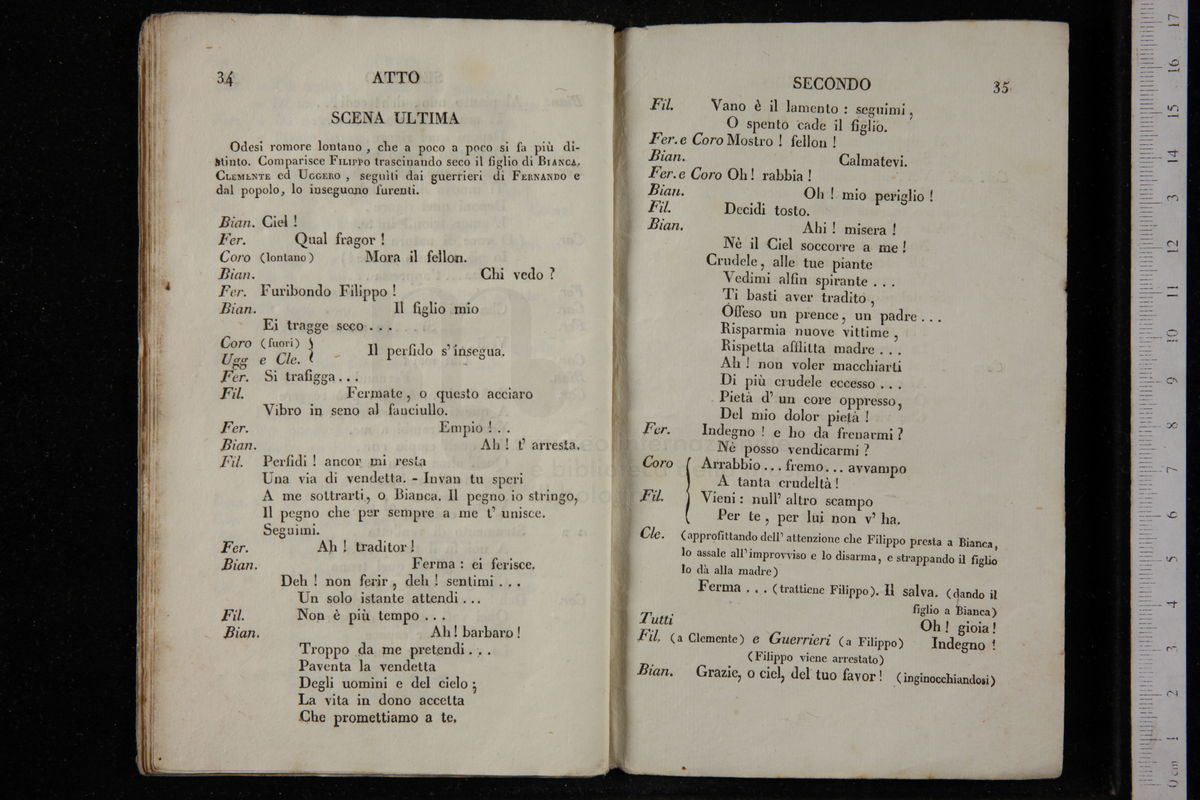 34 ATTO
SCENA ULTIMA
Odesi romore lontano , che a poco a poco si fa più di-
stinto. Comparisce FILIPPO trascinando seco il figlio di BIANCA.
CLEMENTE ed UGGERO , seguiti dai guerrieri di FERNANDO e
dal popolo, lo inseguono furenti.
Bian. Ciel !
Fer. Qual fragor !
Coro (lontano) Mora il fellon.
Bian. Chi vedo ?
Fer. Furibondo Filippo !
Bian. Il figlio mio
Ei tragge seco . . .
Coro (fuori) }
Ugg e Cle. { Il perfido s' insegua.
Fer. Si trafigga . . .
Fil. Fermate , o questo acciaro
Vibro in seno al fanciullo.
Fer. Empio ! . .
Bian. Ah ! t' arresta.
Fil. Perfidi ! ancor mi resta
Una via di vendetta. - Invan tu speri
A me sottrarti, o Bianca. Il pegno io stringo,
Il pegno che per sempre a me t' unisce.
Seguimi.
Fer. Ah ! traditor !
Bian. Ferma : ei ferisce.
Deh ! non ferir , deh ! sentimi . . .
Un solo istante attendi . . .
Fil. Non è più tempo . . .
Bian. Ah ! barbaro !
Troppo da me pretendi . . .
Paventa la vendetta
Degli uomini e del cielo ;
La vita in dono accetta
Che promettiamo a te,
SECONDO 35
Fil. Vano è il lamento : seguimi ,
O spento cade il figlio.
Fer. e Coro Mostro ! fellon !
Bian. Calmatevi.
Fer. e Coro Oh ! rabbia !
Bian. Oh ! mio periglio !
Fil. Decidi tosto.
Bian. Ahi ! misera !
Nè il Ciel soccorre a me !
Crudele , alle tue piante
Vedimi alfin spirante . . .
Ti basti aver tradito ,
Offeso un prence , un padre . . .
Risparmia nuove vittime ,
Rispetta afflitta madre . . .
Ah ! non voler macchiarti
Di più crudele eccesso . . .
Pietà d' un core oppresso,
Del mio dolor pietà !
Fer. Indegno ! e ho da frenarmi ?
Nè posso vendicarmi ?
Coro { Arrabbio . . . fremo . . . avvampo
A tanta crudeltà !
Fil. Vieni : null' altro scampo
Per te , per lui non v' ha.
Cle. (approfittando dell' attenzione che Filippo presta a Bianca,
lo assale all' improvviso e lo disarma, e strappando il figlio
lo dà alla madre)
Ferma . . . (trattiene Filippo). Il salva. (dando il
figlio a Bianca)
Tutti Oh ! gioia !
Fil. (a Clemente) e Guerrieri (a Filippo) Indegno !
(Filippo viene arrestato)
Bian. Grazie, o ciel, del tuo favor ! (inginocchiandosi)